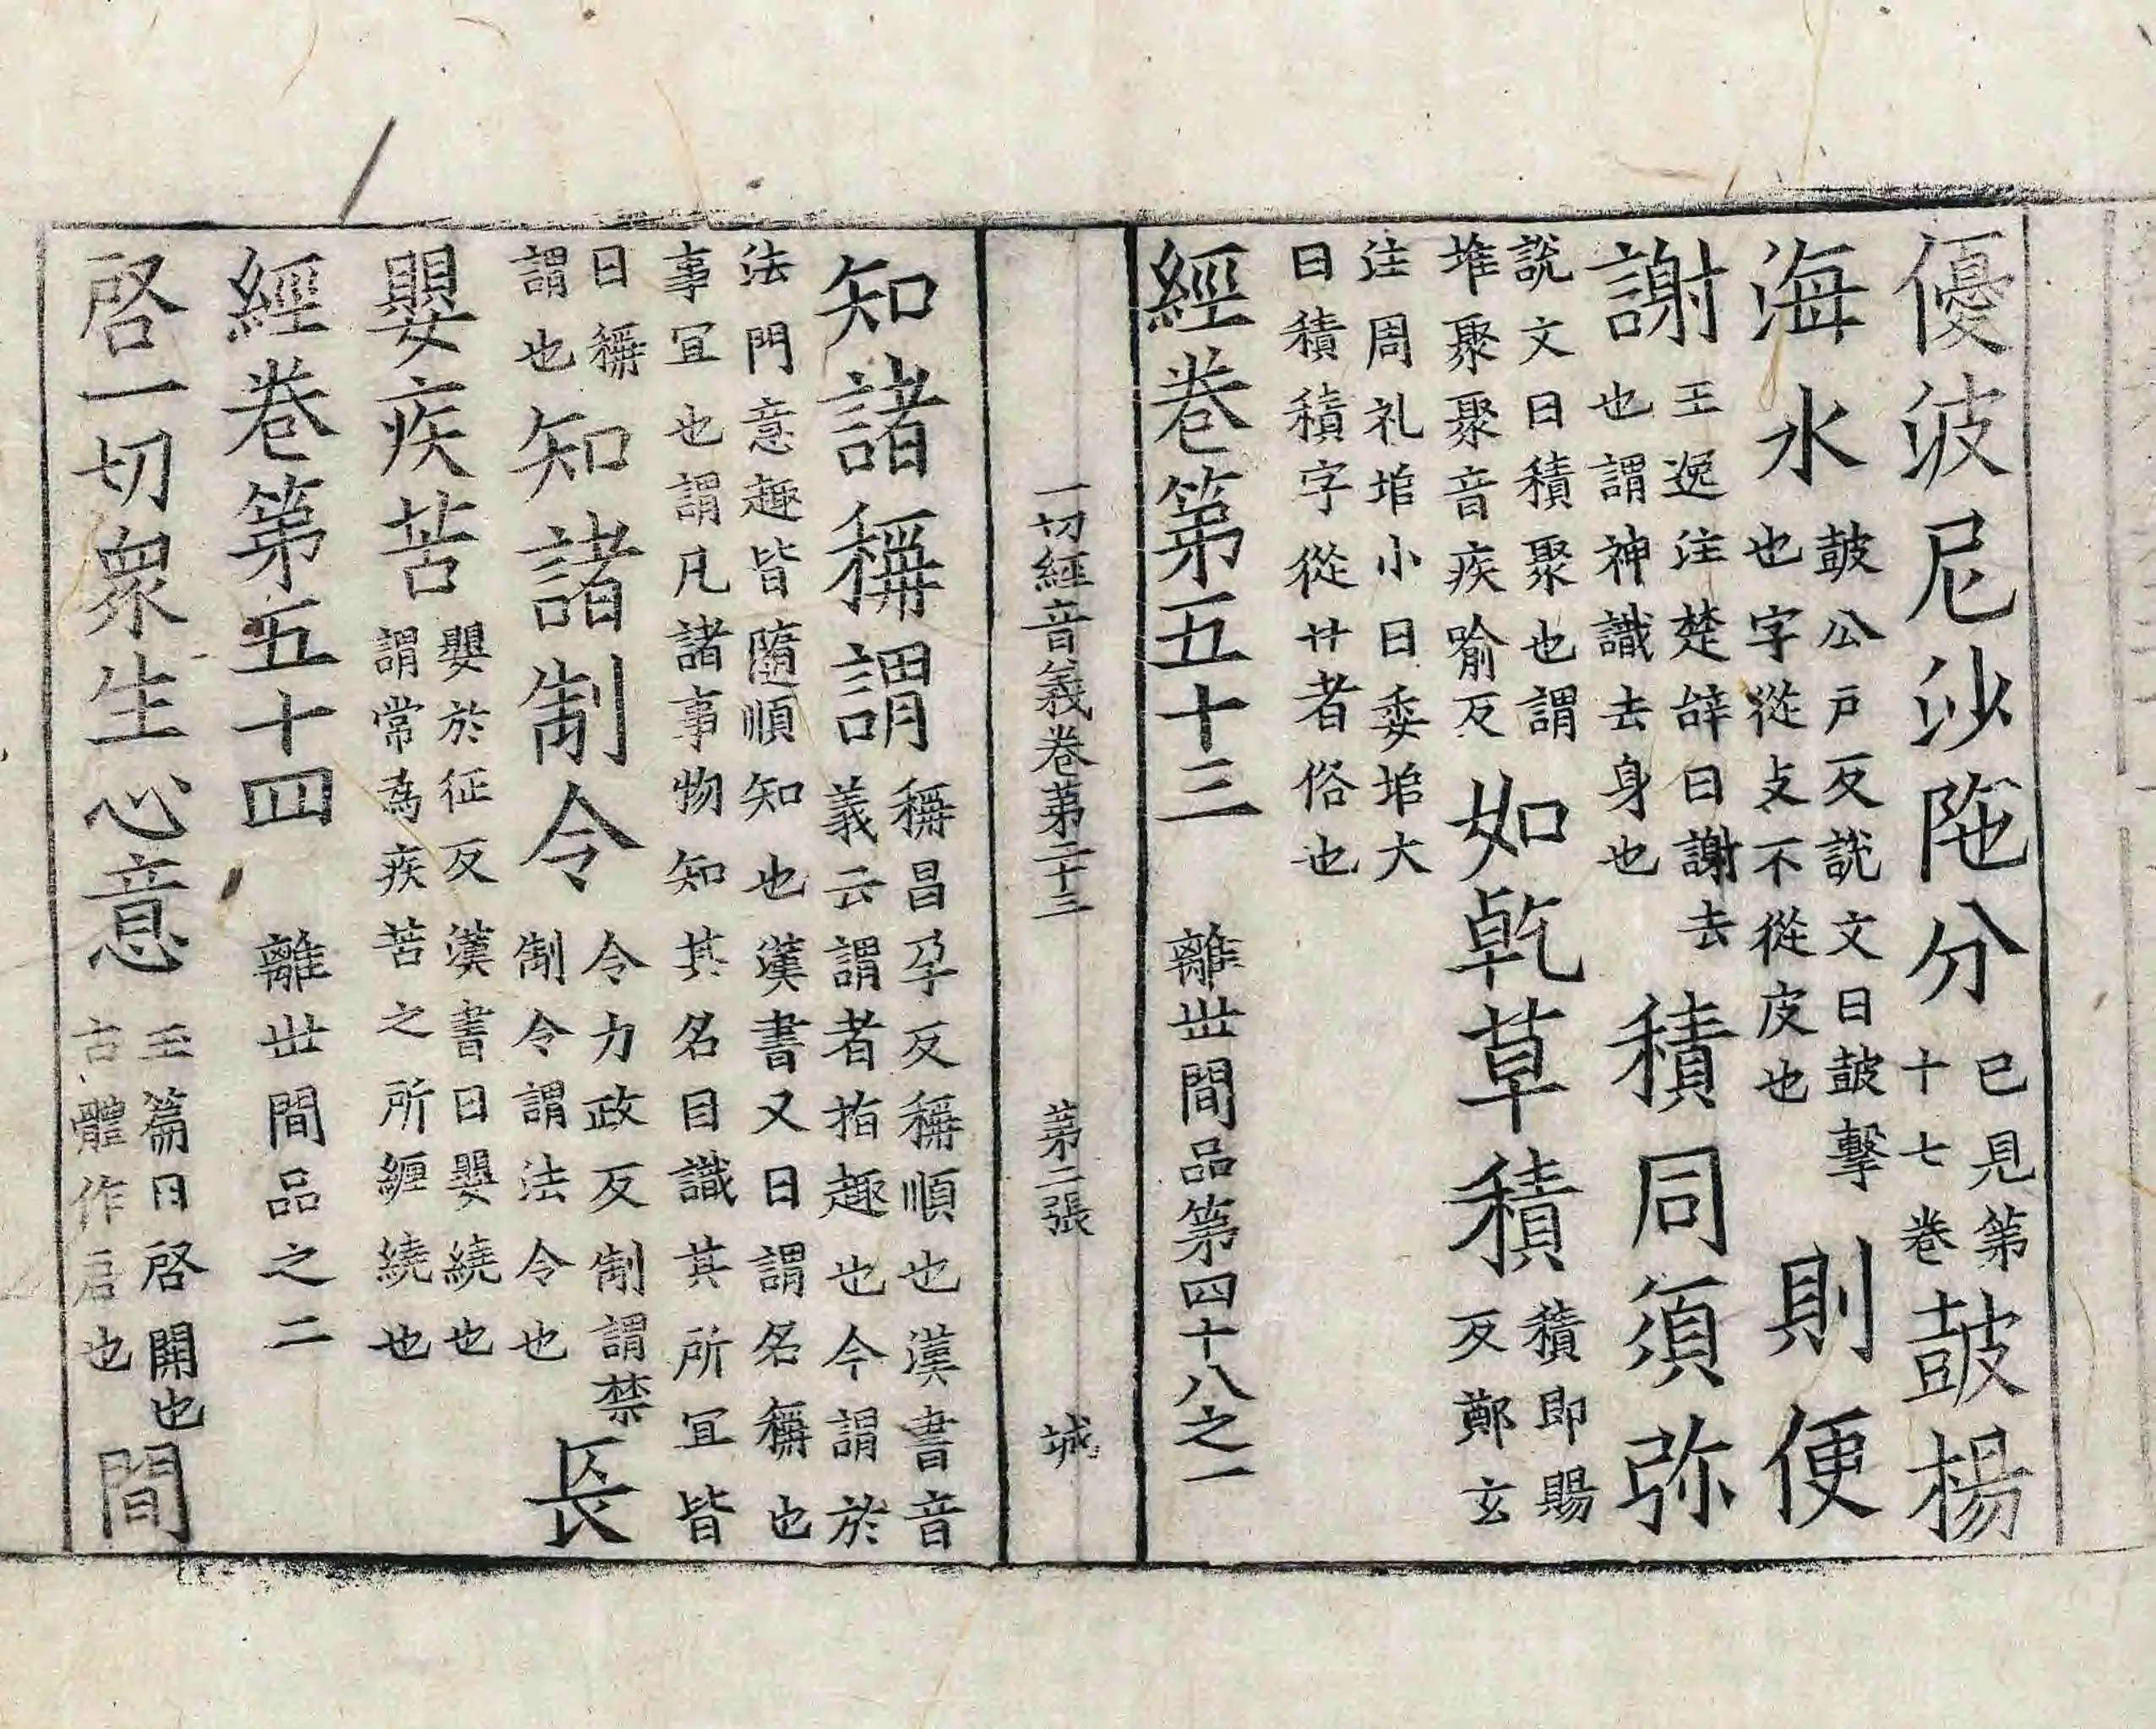 優波尼沙陁分 已見第十七卷 皷楊
海水 皷公戶反說文曰皷擊也字從攴不從皮也 則便
謝 王逸注楚辞曰謝去也謂神識去身也 積同須弥
說文曰積聚也謂堆聚聚音疾喻反 如乾草積 積即賜反鄭玄
注周礼垖小曰委垖大曰積積字從廾者俗也
經卷第五十三 離世間品第四十八之一
一切經音義卷第二十三 第二張 城
知諸稱謂 稱昌孕反稱順也漢書音義云謂者指趣也今謂於
法門意趣皆隨順知也漢書又曰謂名稱也事宜也謂凡諸事物知其名目識其所宜皆
曰稱謂也 知諸制令 令力政反制謂禁制令謂法令也 長
嬰疾苦 嬰於征反漢書曰嬰繞也謂常為疾苦之所纏繞也
經卷第五十四 離世間品之二
啓一切衆生心意 玉篇曰啓開也古體作启也 間